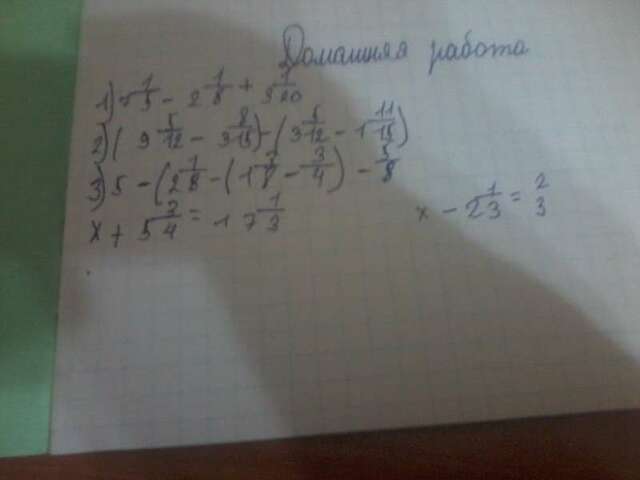 Домашняя работа
1) 4 1/5 - 2 1/8 + 5 1/20
2) ( 9 5/12 - 3 8/15) - ( 3 5/12 - 1 11/15)
3) 5 - (2 1/8 - (1 1/2 - 3/4) - 5/8
x + 5 2/4 = 17 1/3 x - 2 1/3 = 2/3